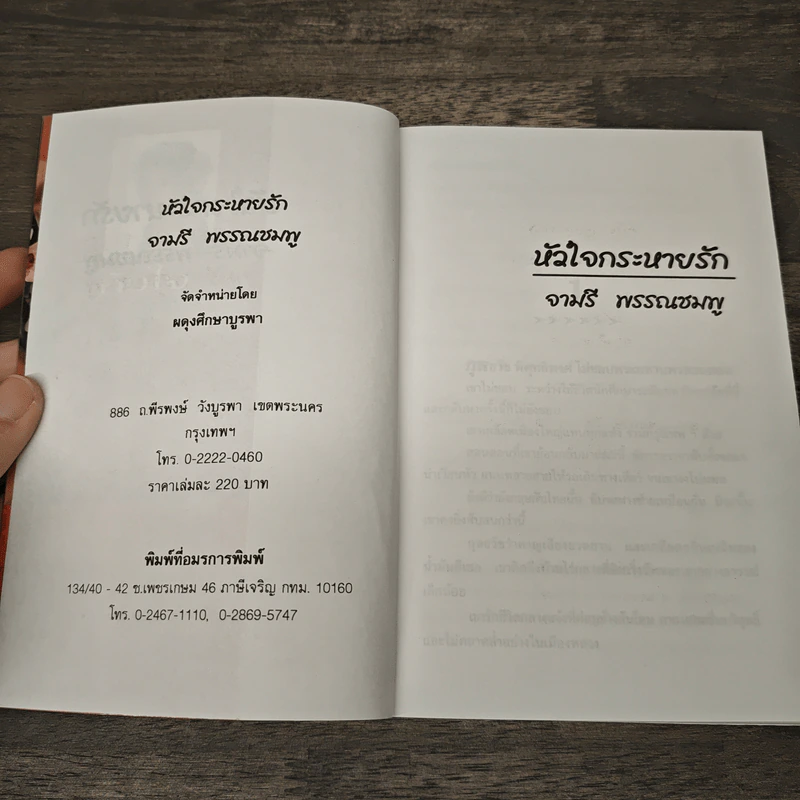 หัวใจกระหายรัก
จามรี พรรณชมพู
จัดจำหน่ายโดย
ผดุงศึกษาบูรพา
886 ถ.พีรพงษ์ วังบูรพา เขตพระนคร
กรุงเทพฯ
โทร. 0-2222-0460
ราคาเล่มละ 220 บาท
พิมพ์ที่อมรการพิมพ์
134/40 - 42 ซ.เพชรเกษม 46 ภาษีเจริญ กทม. 10160
โทร. 0-2467-1110, 0-2869-5747
หัวใจกระหายรัก
จามรี พรรณชมพู